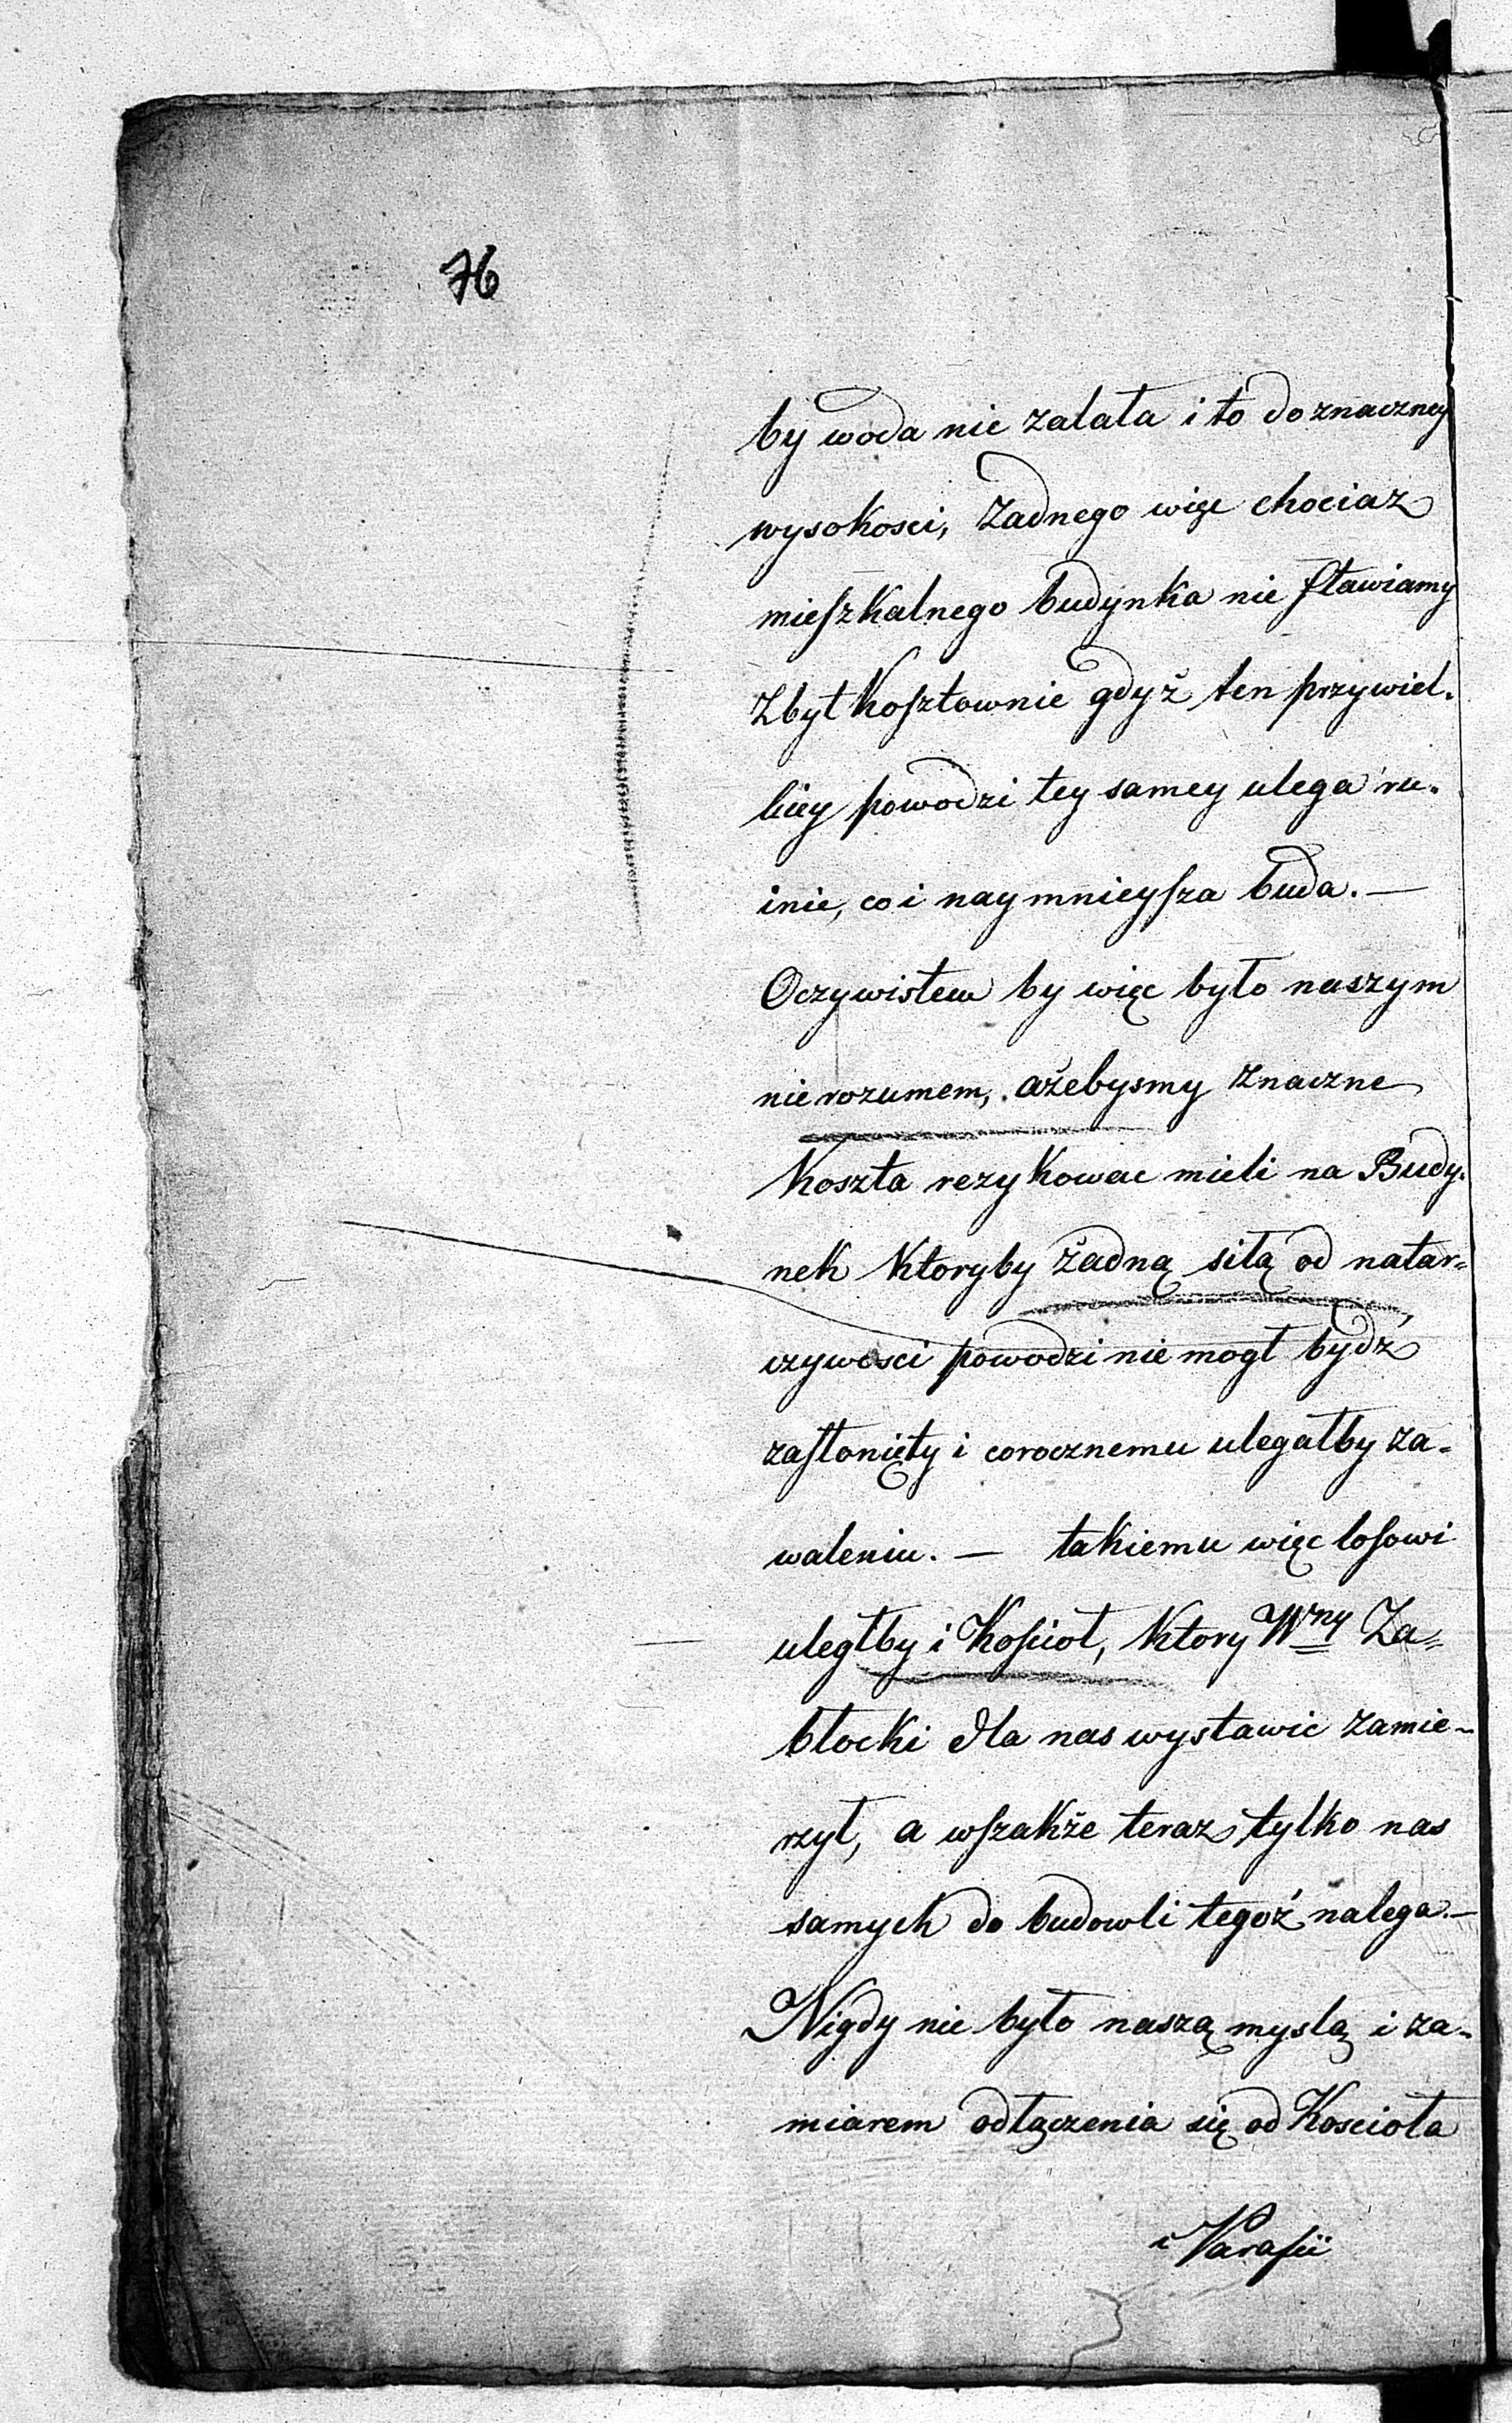 76
by woda nie zalała i to do znaczney
wysokosci, Zadnego więc chociaz
mieſzkalnego budynka nie ſtawiamy
Zbyt koſztownie gdyż ten przy wiel-
kiey powodzi tey samey ulega ru-
inie, co i naymnieyſza buda. —
Oczywistem by więc było naszym
nierozumem, ażebysmy znaczne
koszta rezykowac mieli na Budy-
nek ktoryby żadną siłą od natar-
czywosci powodzi nie mogł bydź
zaſłonięty i corocznemu ulegałby za-
waleniu. — takiemu więc loſowi
uległby i Koſcioł, ktory Wny Za-
błocki dla nas wystawic zamie-
rzył, a wſzakże teraz tylko nas
samych do budowli tegoż nalega. —
Nigdy nie było naszą myslą i za-
miarem odłączenia się od Koscioła
i Parafii